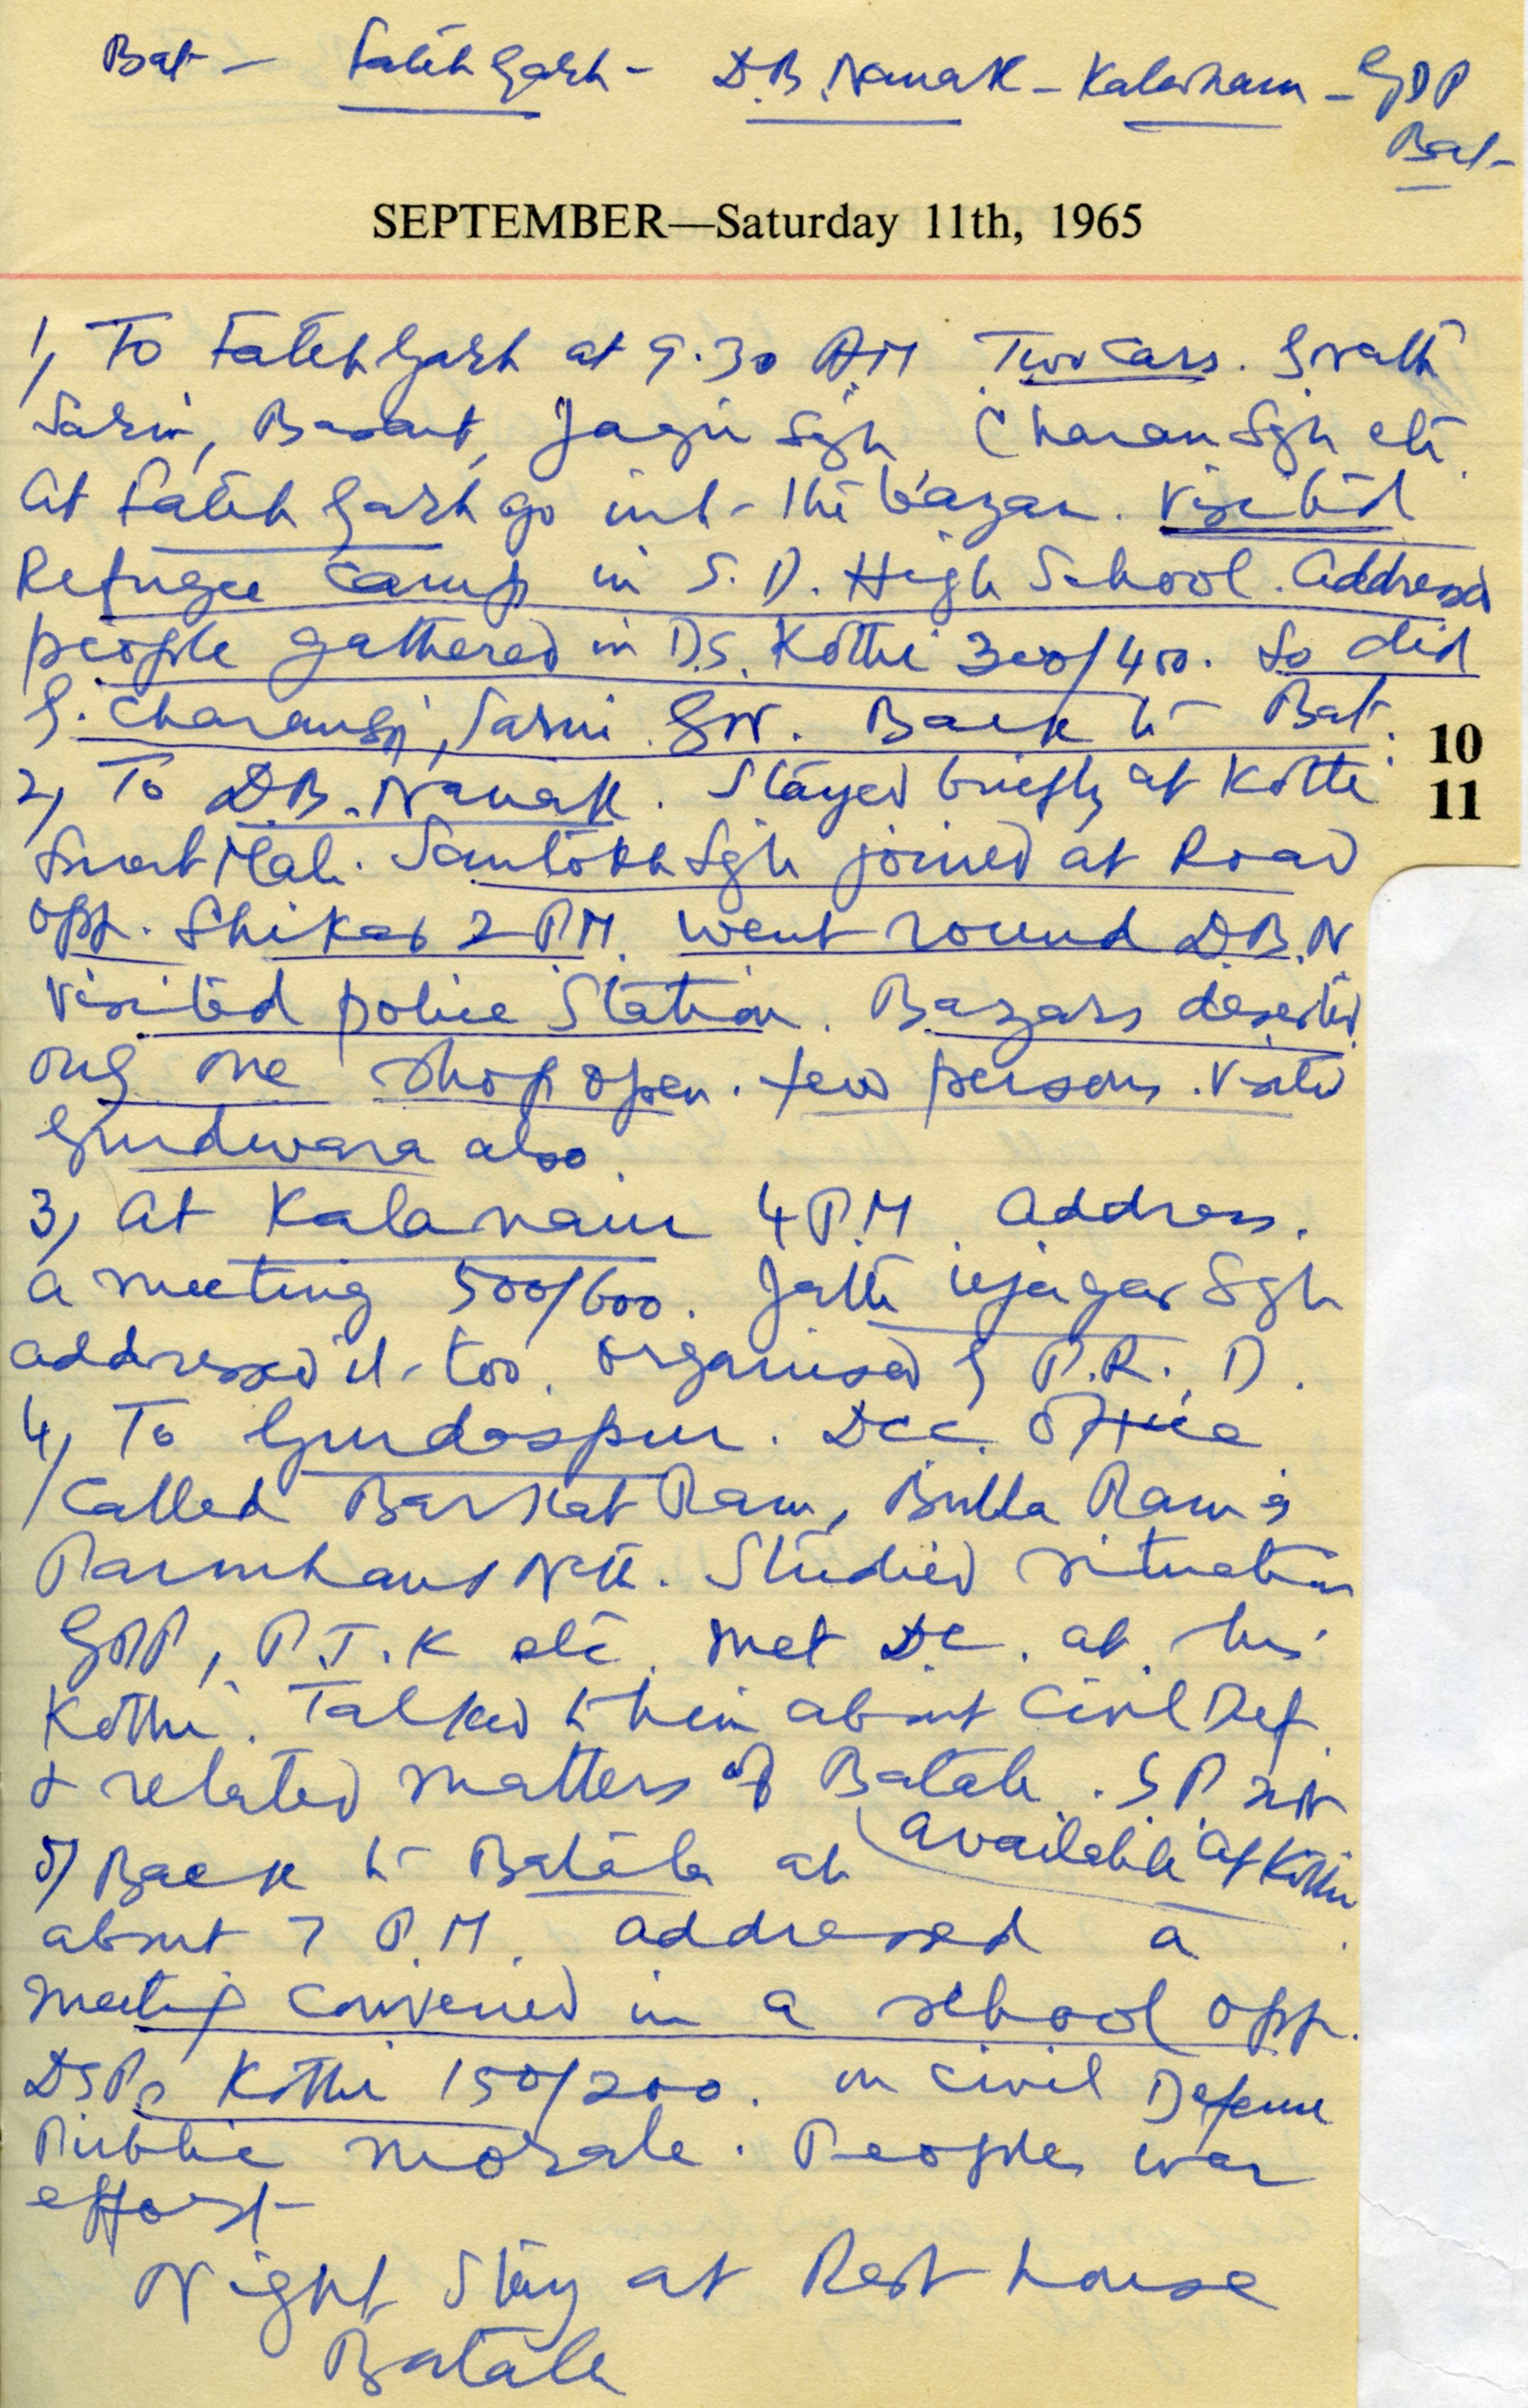 Bat - Fatehgarh - D.B. Nanak - Kalanaur - GDP
Bat-
SEPTEMBER—Saturday 11th, 1965
1, To Fatehgarh at 9.30 AM Two cars.
Sarin, Basant, Jagir Sgh Charan Sgh etc.
At Fateh Garh go into the bazar. Visited
Refugee camp in S.D. High School. Addressed
people gathered in D.S. Kothi 300/400. So did
S. Charan Sgh, Sarin. Back to Bat.
10
2, To D.B. Nanak. Stayed briefly at Kotli
11
Surat Mali. Santokh Sgh joined at Road
opp. Shikar 2 PM. Went round D.B.N
Visited police Station. Bazars deserted
only one shop open. few persons. Visited
Gurdwara also.
3, At Kalanaur 4 P.M. Address.
a meeting 500/600. Jatht Ujagar Sgh
addressed it too. Organised by P.R.D.
4, To Gurdaspur. DCC. Office
Called Barkat Ram, Bulla Ram &
Nath. Studied situation
GDP, P.T.K etc. Met D.C. at his
Kothi. Talked to him about Civil Def.
& related matters of Batala. S.P. not
available at Kothi
5, Back to Batala at
about 7 P.M. addressed a
meeting convened in a school opp.
DSPs Kothi 150/200. on civil Defence
Public morale. People's war
effort
Night Stay at Rest house
Batala